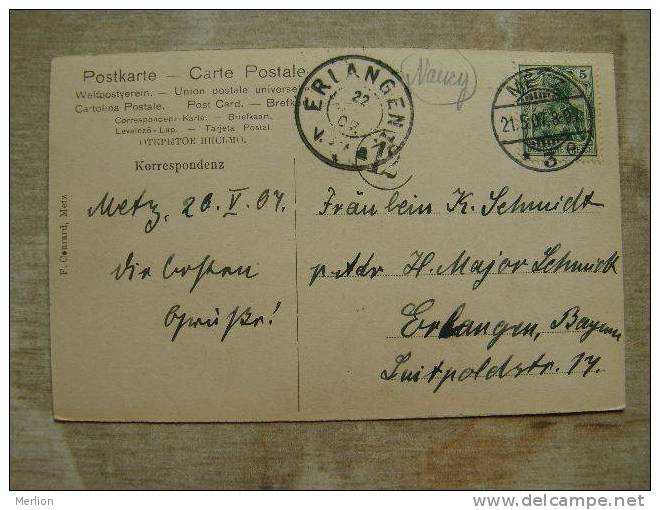 Postkarte — Carte Postale
Weltpostverein. — Union postale universe
Cartolina Postale. Post Card. — Brefk
Correspondenz-Karte. — Briefkaart.
Levelező-Lap. — Tarjeta Postal.
ОТКРЫТОЕ ПИСЬМО.
Korrespondenz
ERLANGEN
22
07
Nancy
5
ME
21.5.07. 8-9
F. Conrard, Metz
Metz, 20. V. 07.
Die besten
Grüße!
Fräulein K. Schmidt
p. Adr H. Major Schmidt
Erlangen, Bayern
Luitpoldstr. 17.
Merlion
delcampe.net